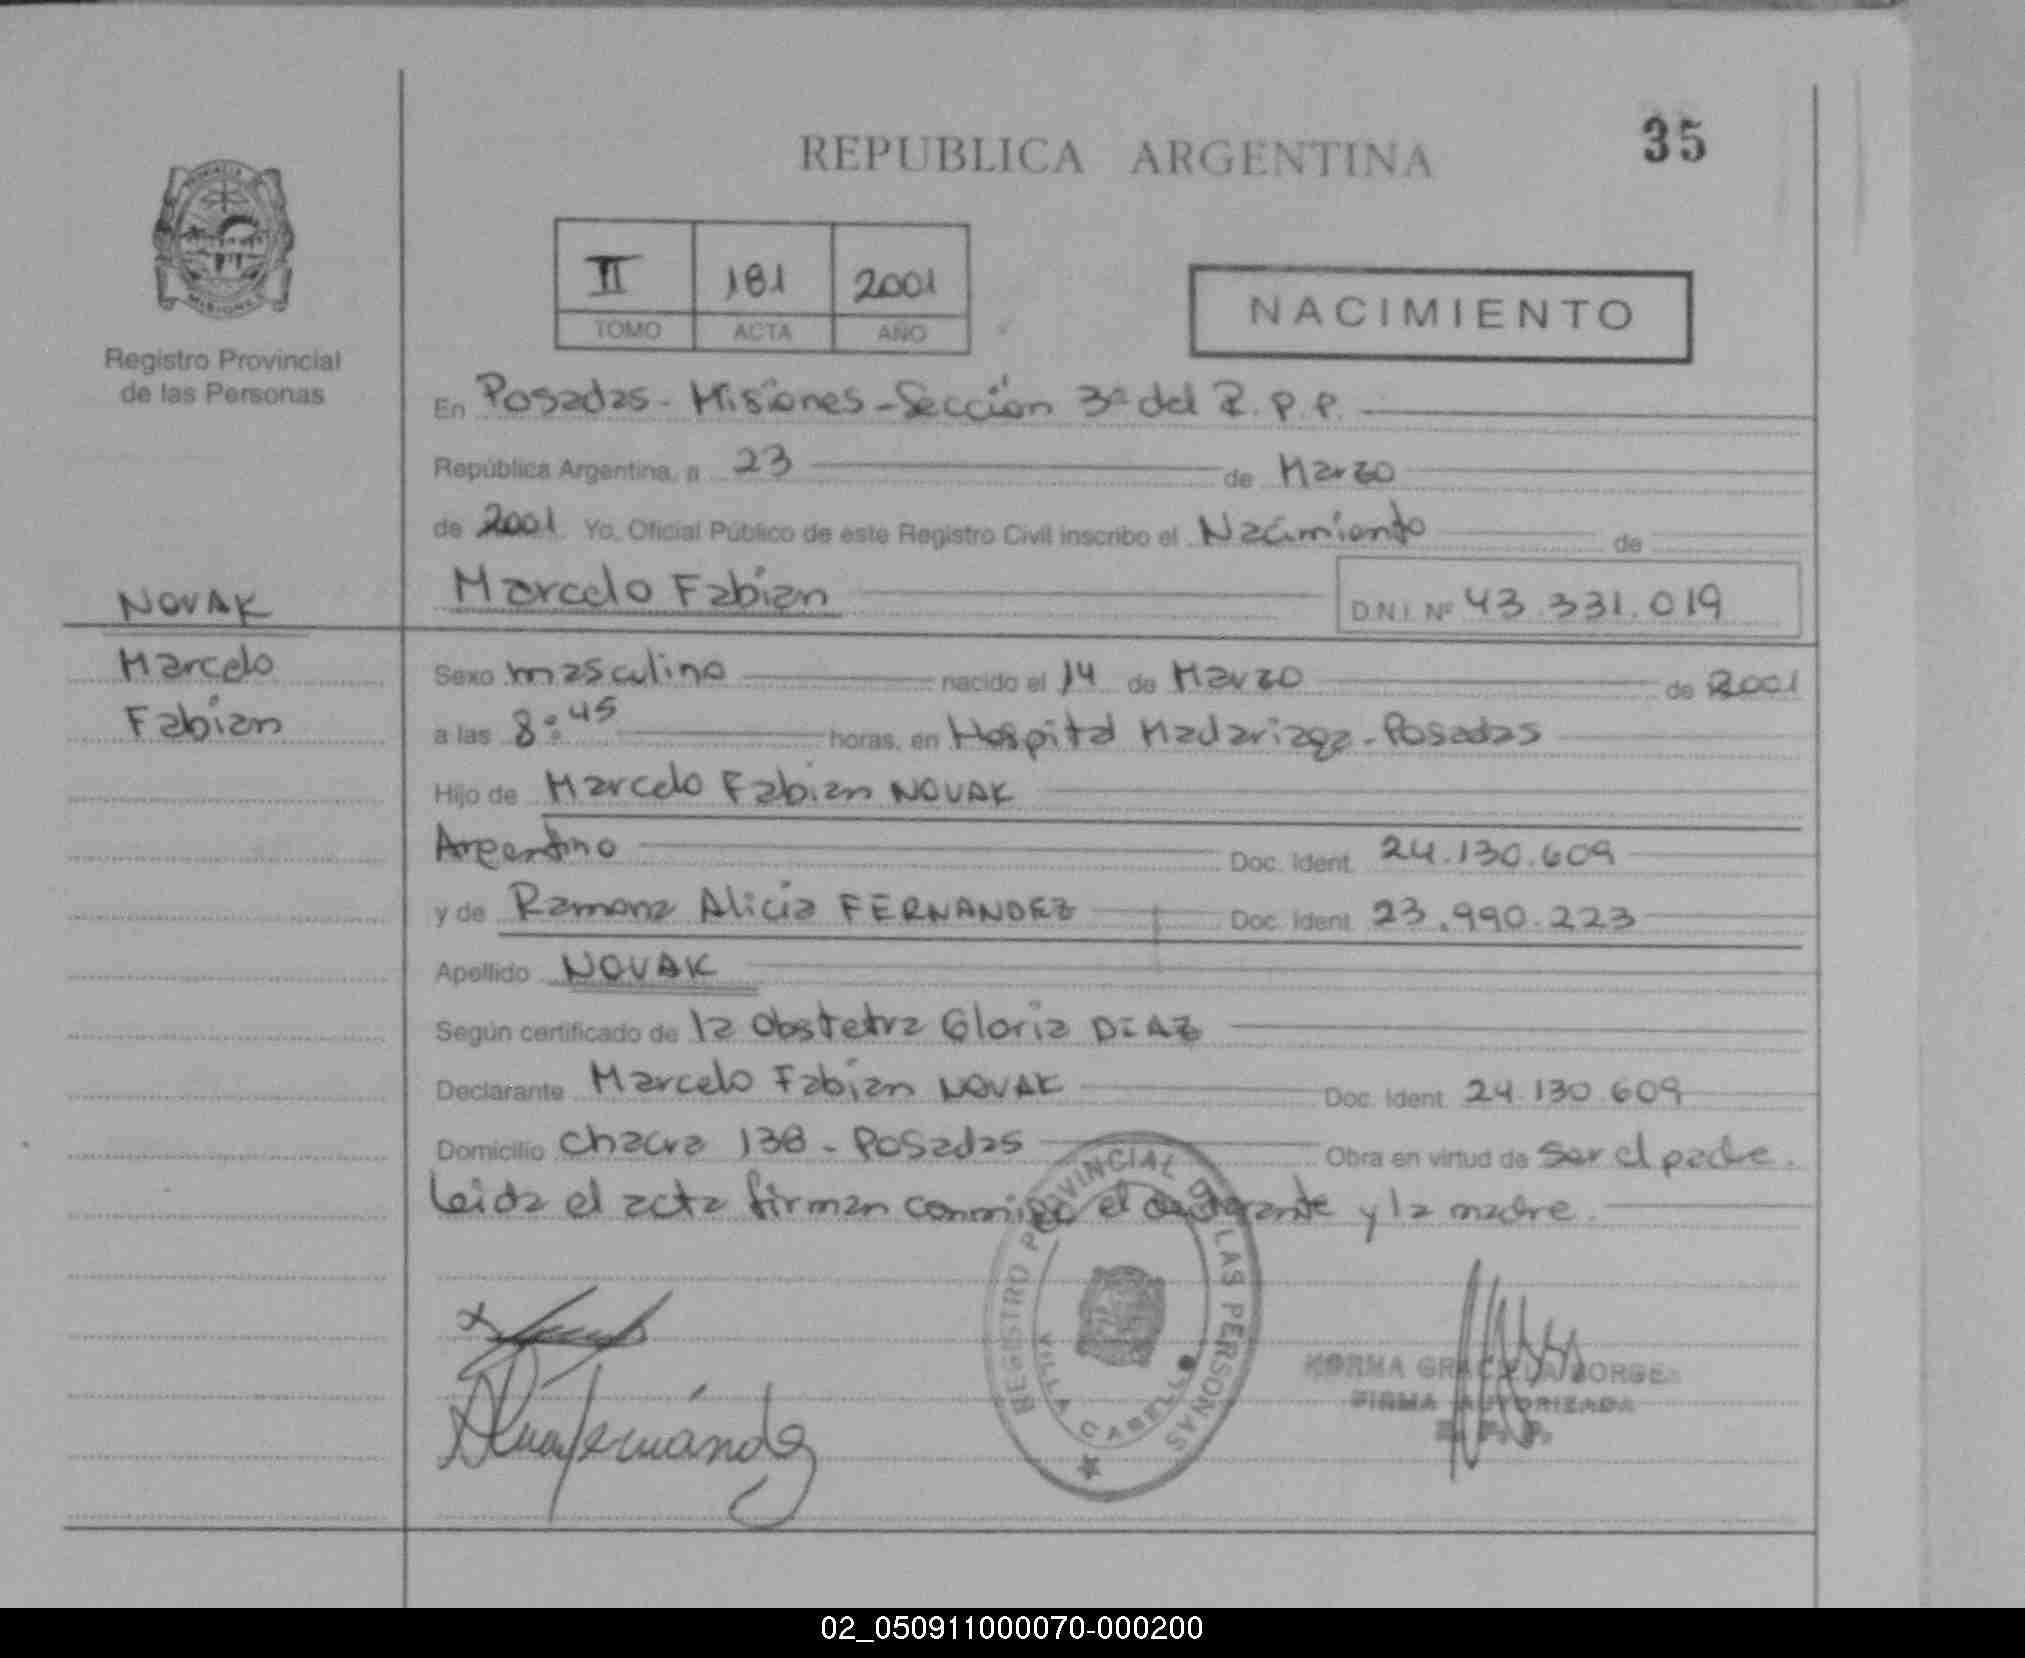 REPUBLICA ARGENTINA
35
II 181 2001
TOMO ACTA AÑO
NACIMIENTO
Registro Provincial
de las Personas
En Posadas - Misiones - Sección 3ª del R.P.P.
República Argentina, a 23 de Marzo
de 2001. Yo, Oficial Público de este Registro Civil inscribo el Nacimiento de
Marcelo Fabian D.N.I. Nº 43.331.019
NOVAK
Marcelo
Fabian
Sexo masculino nacido el 14 de Marzo de 2001
a las 8:45 horas, en Hospital Madariaga - Posadas
Hijo de Marcelo Fabian NOVAK
Argentino Doc. Ident. 24.130.609
y de Ramona Alicia FERNANDEZ Doc. Ident. 23.990.223
Apellido NOVAK
Según certificado de la Obstetra Gloria DIAZ
Declarante Marcelo Fabian NOVAK Doc. Ident. 24.130.609
Domicilio Chacra 138 - Posadas Obra en virtud de ser el padre.
Leida el acta firman conmigo el declarante y la madre.
REGISTRO PROVINCIAL DE LAS PERSONAS
VILLA CABELLO
NORMA GRACIELA BORGES
FIRMA AUTORIZADA
R. P. P.
Fernández
02_050911000070-000200